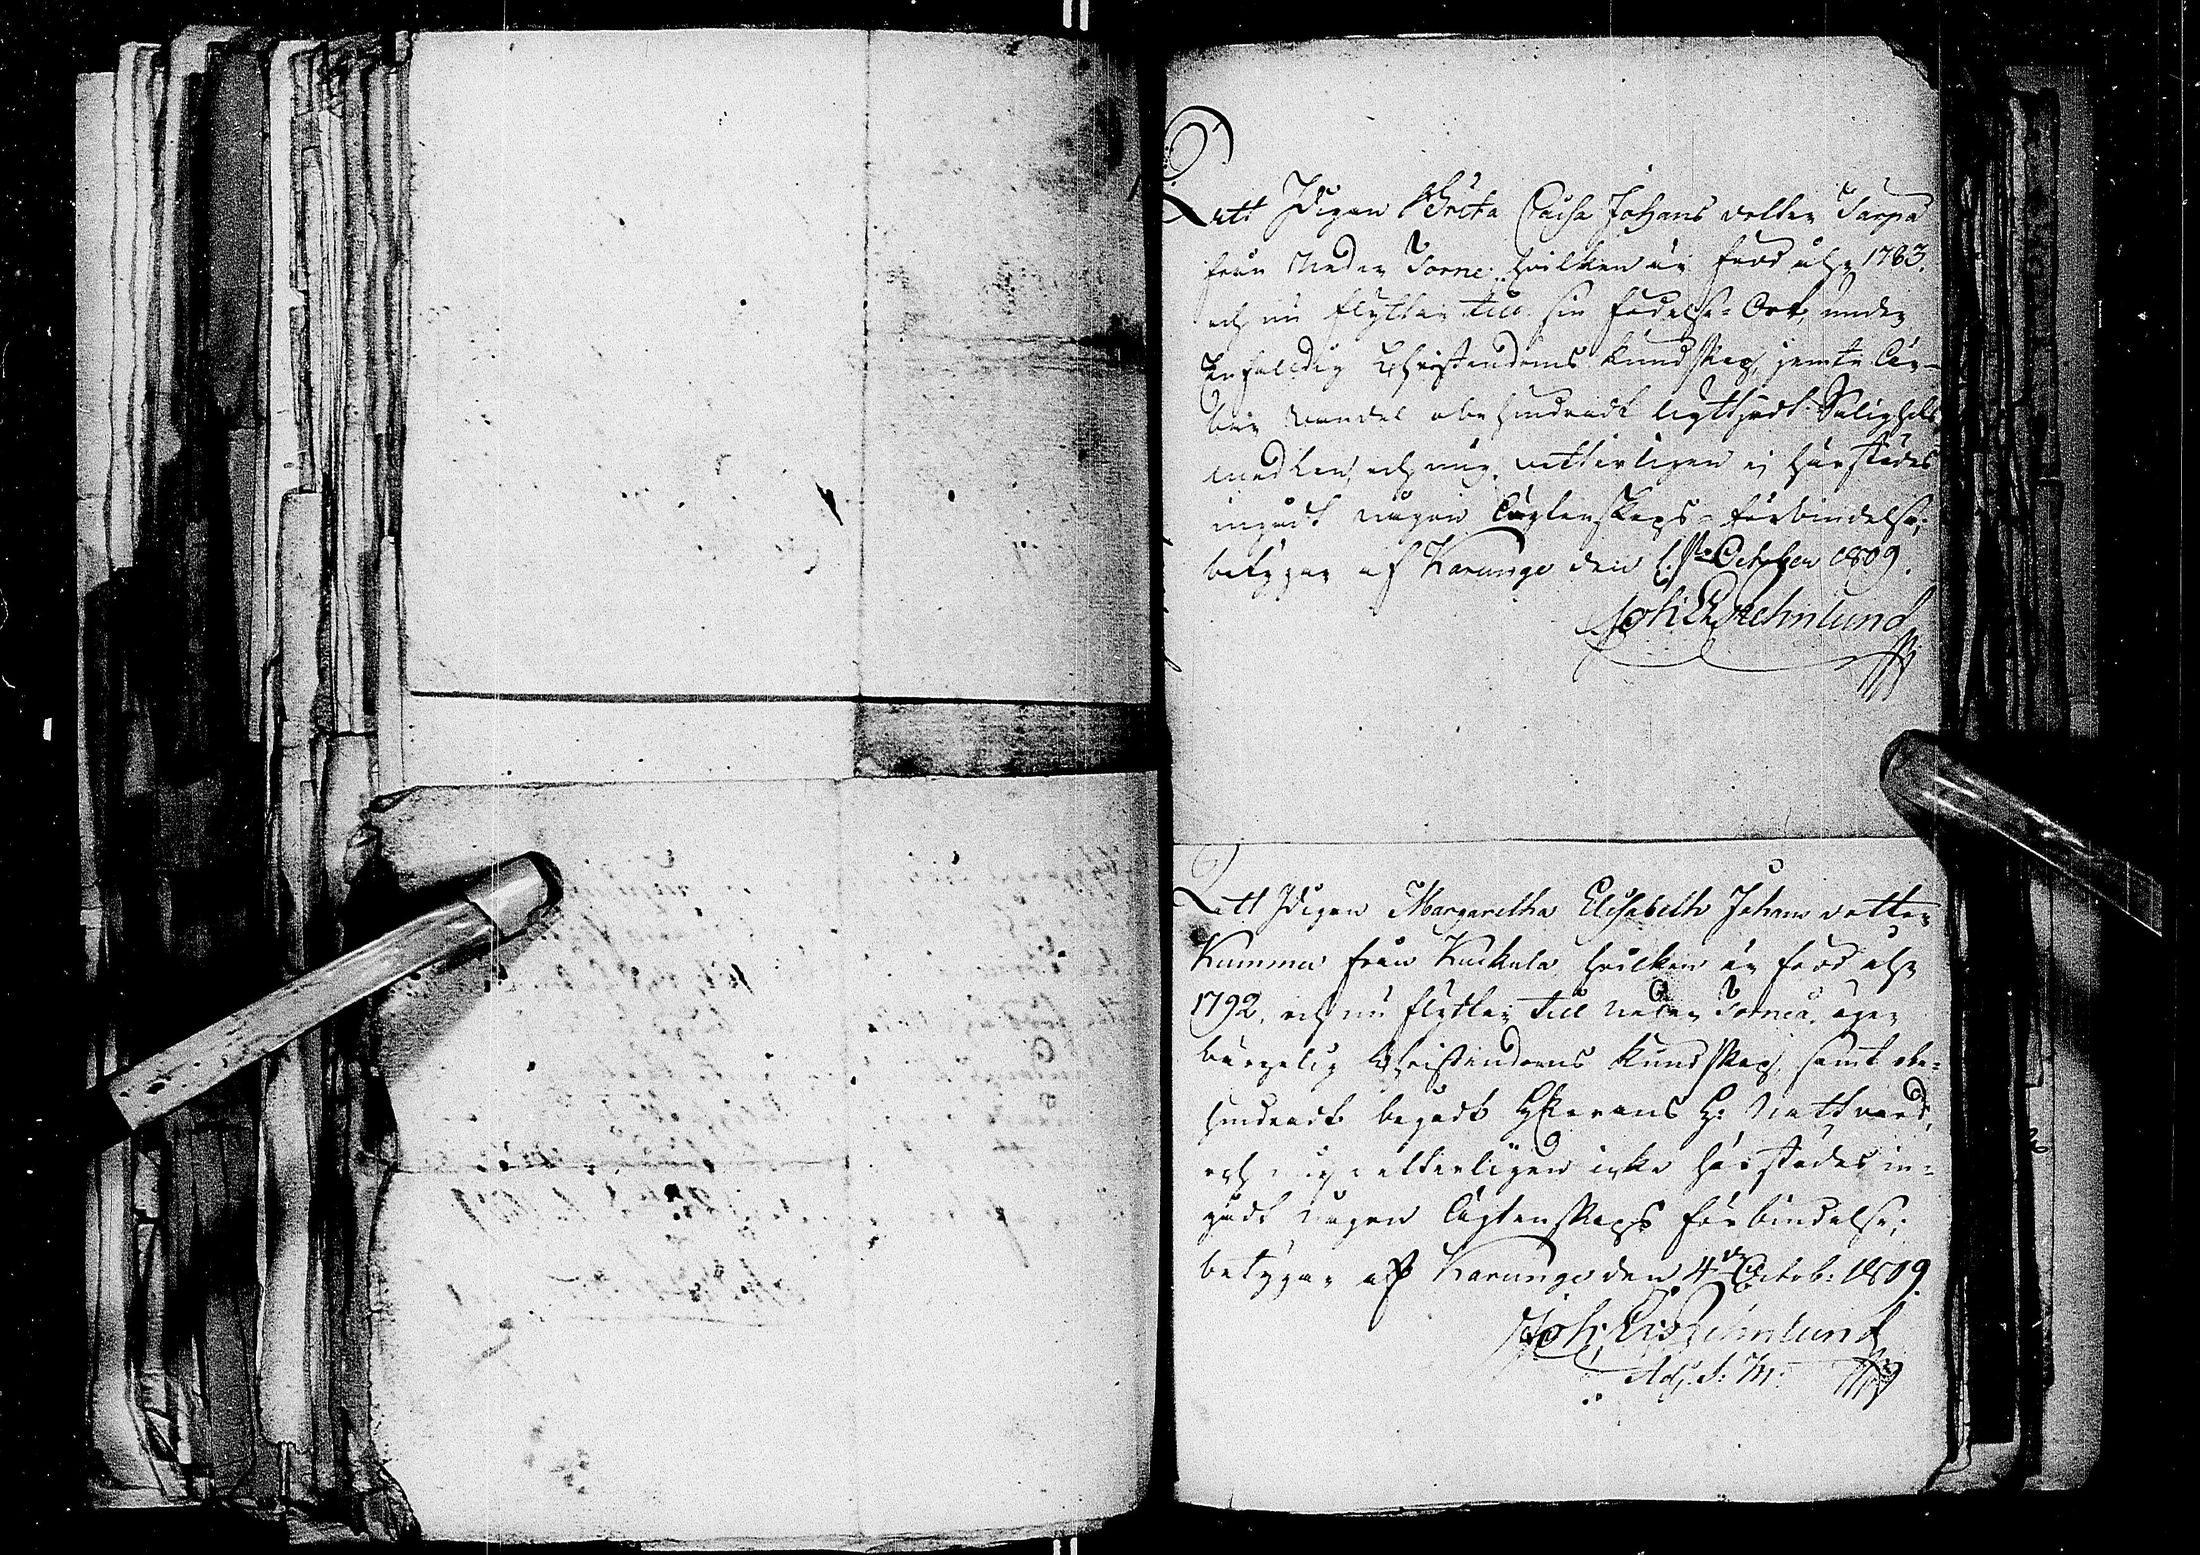 Att Pigan Brita Caisa Johans dotter Tarpa
från Neder Torne, hvilken är född åhr 1783.
och nu flyttar till sin födelse-Ort, under
Enfaldig Christendoms Kundskap, jemte Är-
bar wandel obehindradt nyttjadt Salighets
medlen, och mig vetterligen ej härstädes
ingådt någon Ägtenskaps-förbindelse;
betygar af Karungi den October 1809.
Joh: Er: Rehnlund
Att Pigan Margaretha Elisabeth Johans dotter
Kumma från Kuckula, hvilken är född åhr
1792, och nu flyttar till Neder Torneå, äger
bergelig Christendoms Kundskap, samt obe-
hindradt begådt HErrans H: Nattvard,
och mig vetterligen icke härstädes in-
gådt någon Ägtenskaps förbindelse;
betygar af Karungi den 4de Octob: 1809.
Joh: Er: Rehnlund
Adj. S: M: